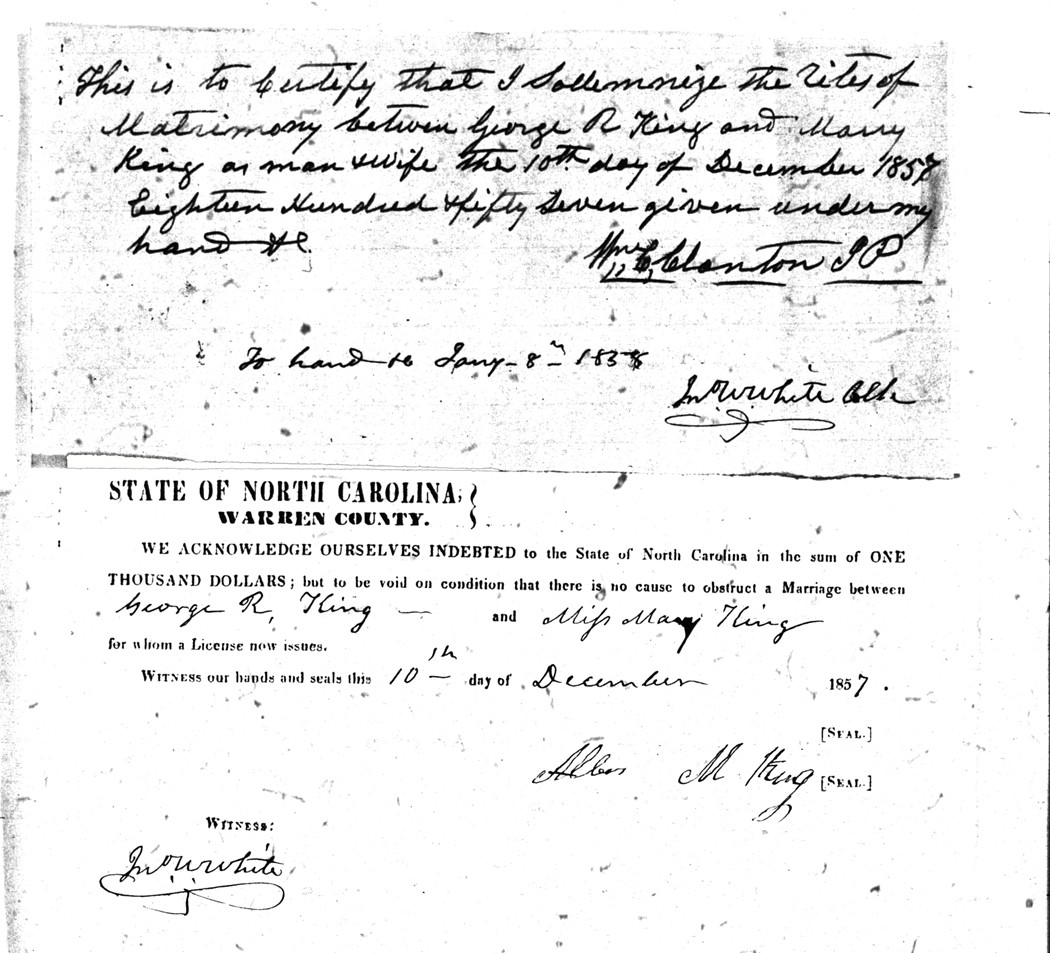 This is to Certify that I Sollemnize the rites of
Matrimony betwen George R King and Mary
King as man & wife the 10th day of December 1857
Eighteen Hundred & fifty Seven given under my
hand &c.
Wm C, Clanton JP
To hand &c Jany 8th 1858
Jno W White Clk
STATE OF NORTH CAROLINA, }
WARREN COUNTY.
WE ACKNOWLEDGE OURSELVES INDEBTED to the State of North Carolina in the sum of ONE
THOUSAND DOLLARS; but to be void on condition that there is no cause to obstruct a Marriage between
George R, King — and Miss Mary King
for whom a License now issues.
WITNESS our hands and seals this 10th day of December 1857.
[SEAL.]
M King [SEAL.]
WITNESS:
Jno W White